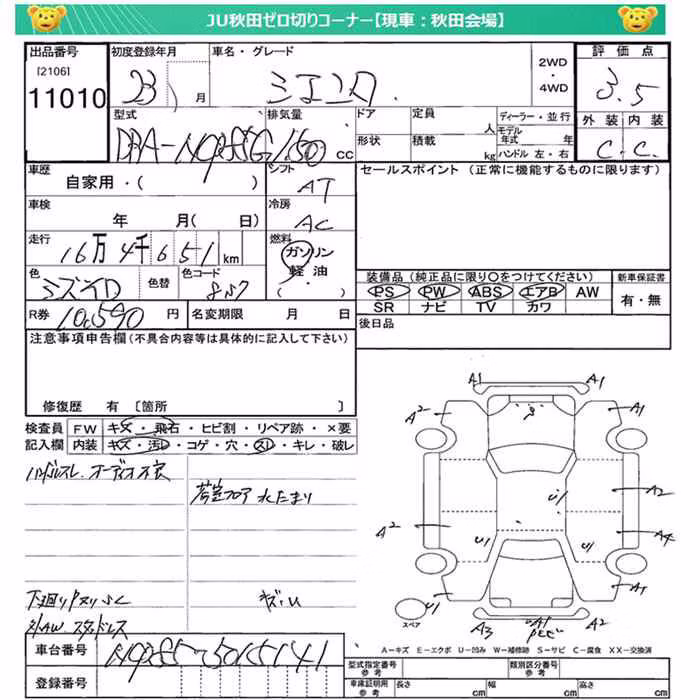 JU秋田ゼロ切りコーナー【現車：秋田会場】
出品番号
[2106]
11010
初度登録年月
23 年 月
車名・グレード
シエンタ
2WD
・
4WD
評価点
3.5
外装 内装
C C
型式
DBA-NCP85G
排気量
1500 cc
ドア
形状
定員
人
積載
kg
ディーラー・並行
モデル年式 年
ハンドル 左・右
車歴
自家用・( )
シフト
AT
セールスポイント (正常に機能するものに限ります)
車検
年 月( 日)
冷房
AC
走行
16万4千651km
燃料
ガソリン
軽油
・
( )
色
ミズイロ
色替
色コード
8S7
装備品(純正品に限り○をつけてください)
PS PW ABS エアB AW
SR ナビ TV カワ
新車保証書
有・無
R券
10,590円
名変期限 月 日
後日品
注意事項申告欄(不具合内容等は具体的に記入して下さい)
修復歴 有 〔箇所 〕
検査員
記入欄
FW キズ・飛石・ヒビ割・リペア跡・×要
内装 キズ・汚レ・コゲ・穴・スレ・キレ・破レ
ハンドルスレ、オーディオ不良
荷室フロア 水たまり
下廻りサビ
キズ・U
社外AW、スタッドレス
A1 A1
A2 A1
U1
A2
A2 A4
U1 U1
U1 A1
A3 A1 A2
スペア
A－キズ E－エクボ U－凹み W－補修跡 S－サビ C－腐食 XX－交換済
車台番号
NCP85-5015141
登録番号
型式指定番号
参考
類別区分番号
参考
車庫証明用
参考
長さ cm
幅 cm
高さ cm